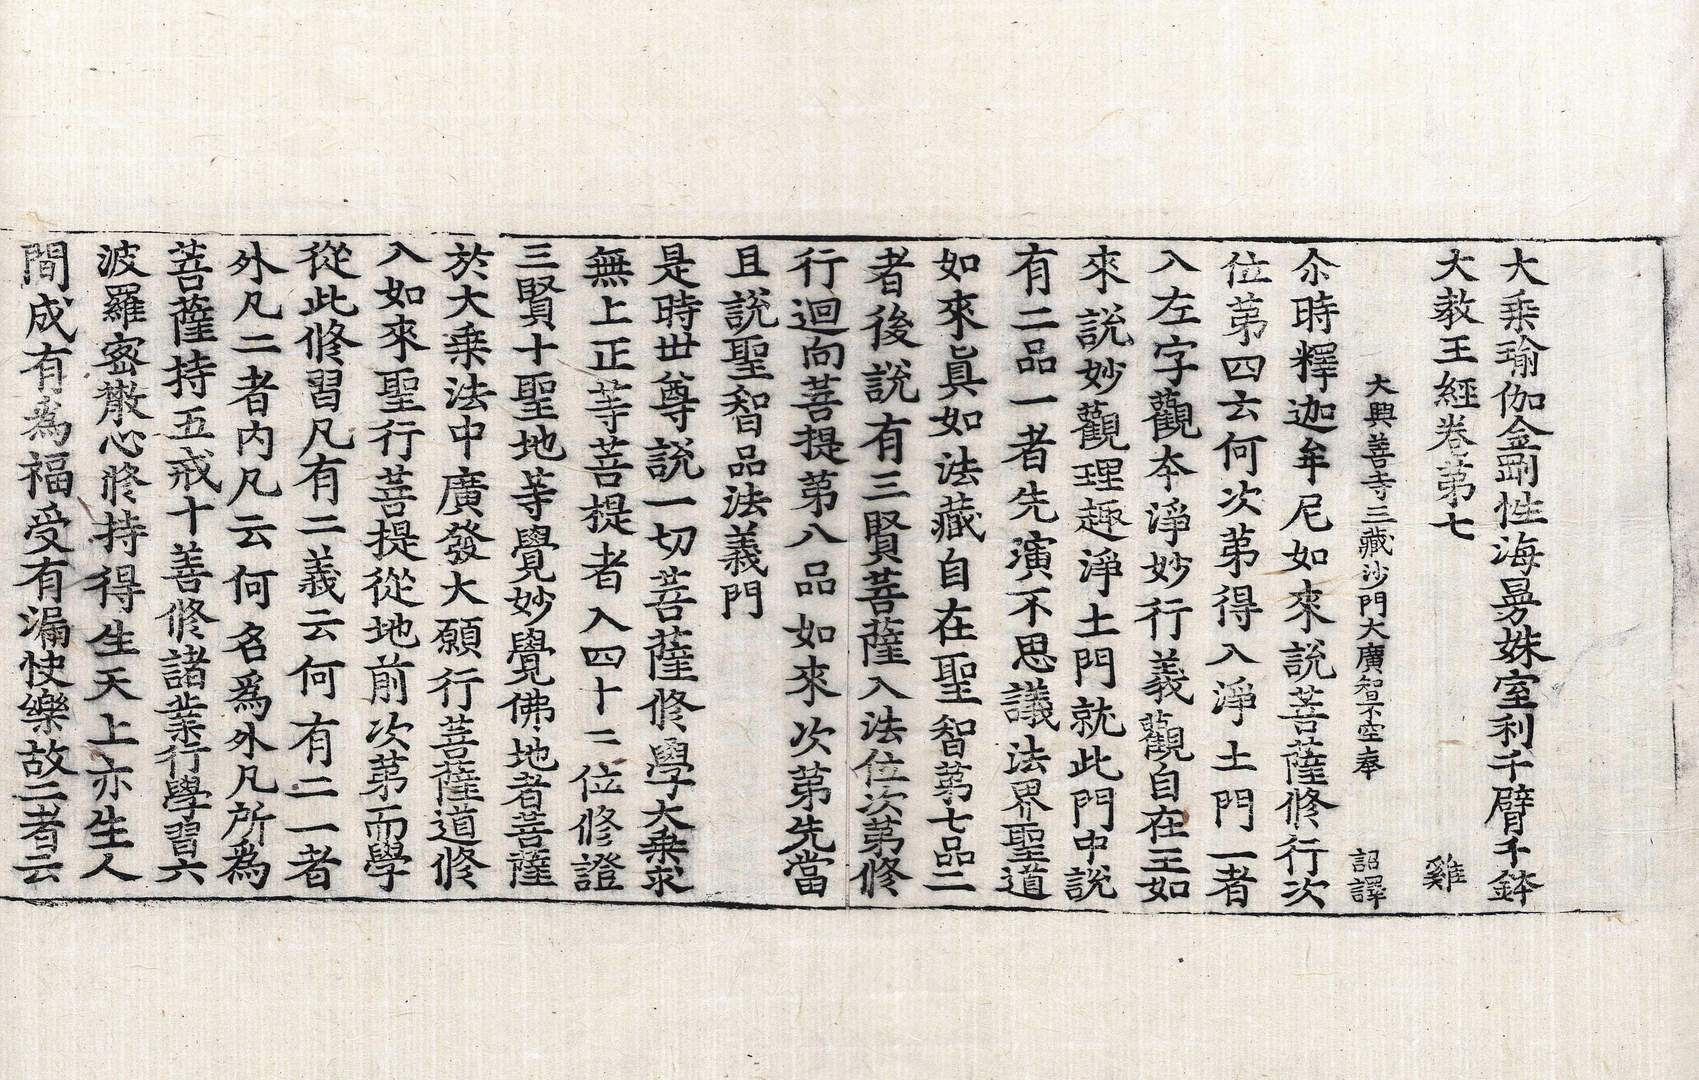 大乘瑜伽金剛性海曼殊室利千臂千鉢
大教王經卷第七 雞
大興善寺三藏沙門大廣智不空奉 詔譯
尒時釋迦牟尼如來說菩薩修行次
位第四云何次第得入淨土門一者
入左字觀本淨妙行義觀自在王如
來說妙觀理趣淨土門就此門中說
有二品一者先演不思議法界聖道
如來眞如法藏自在聖智第七品二
者後說有三賢菩薩入法位次第修
行迴向菩提第八品如來次第先當
且說聖智品法義門
是時世尊說一切菩薩修學大乘求
無上正等菩提者入四十二位修證
三賢十聖地等覺妙覺佛地者菩薩
於大乘法中廣發大願行菩薩道修
入如來聖行菩提從地前次第而學
從此修習凡有二義云何有二一者
外凡二者內凡云何名爲外凡所爲
菩薩持五戒十善修諸業行學習六
波羅蜜散心修持得生天上亦生人
間成有為福受有漏快樂故二者云